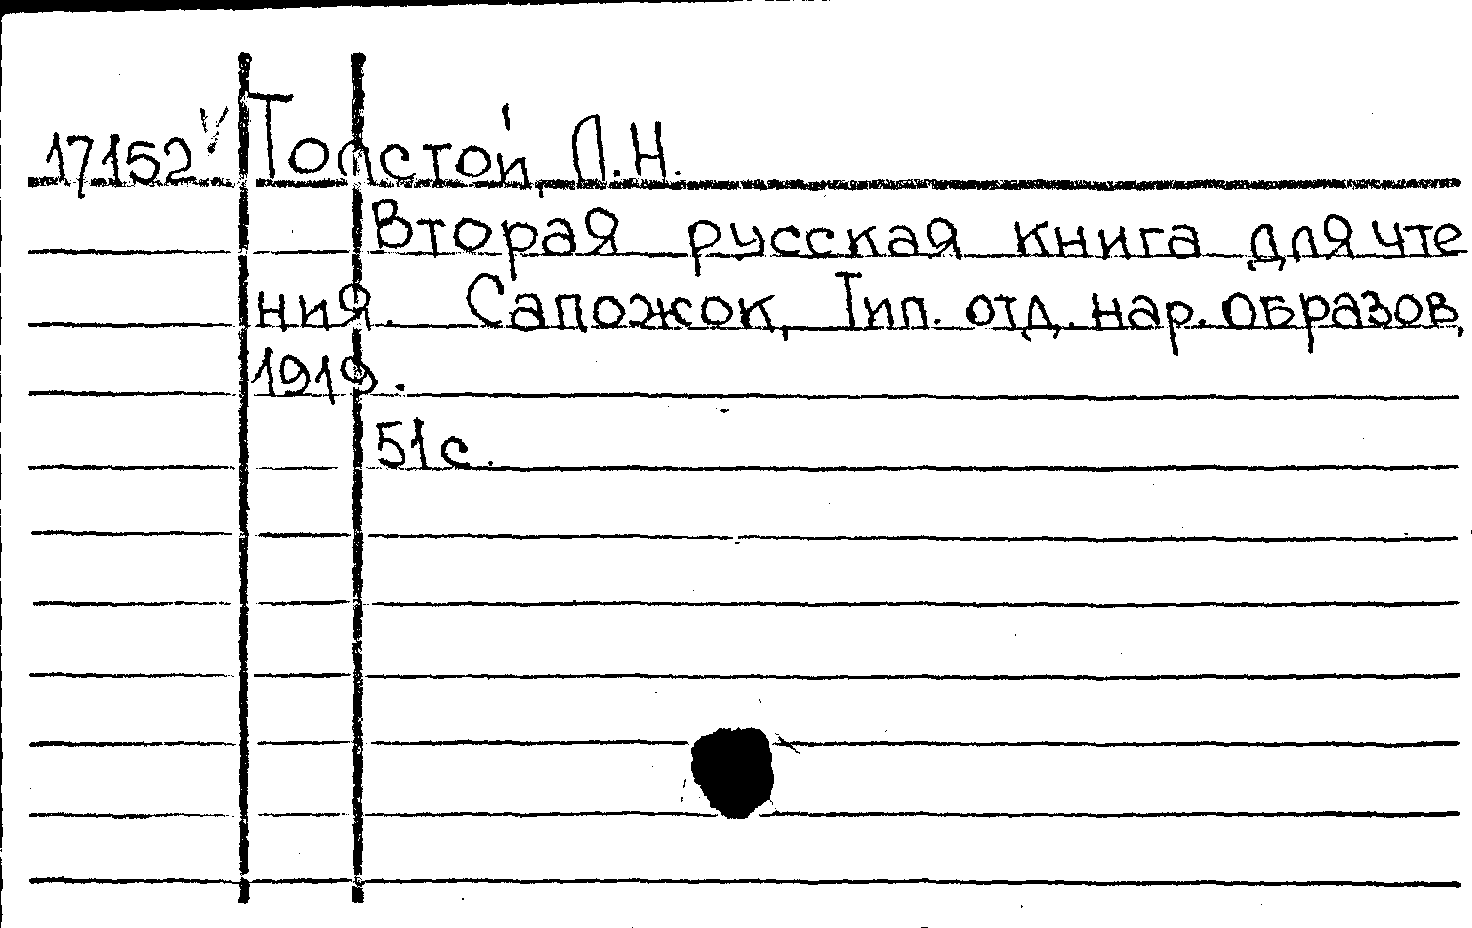 17152 ✓ Толстой, Л.Н.
Вторая русская книга для чте
ния. Сапожок, Тип. отд. нар. образов,
1919.
51 с.